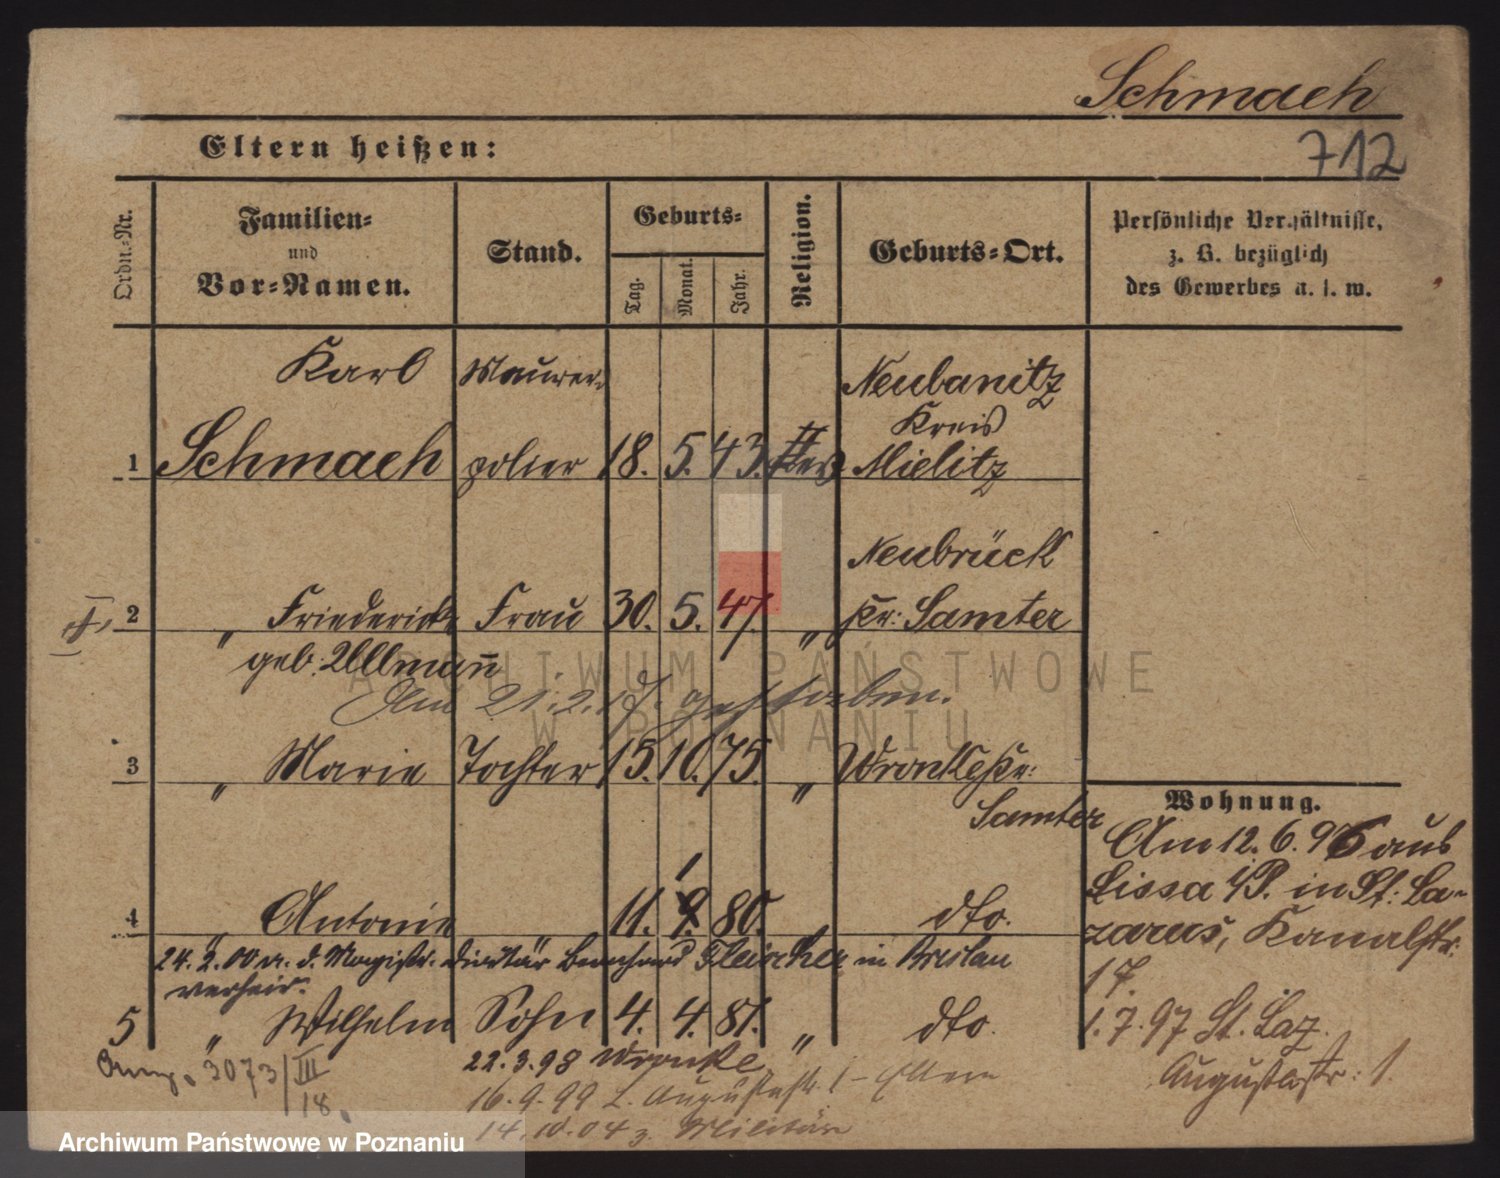 Schmach
712
Eltern heißen:
Ordn.-Nr.
Familien-
und
Vor-Namen.
Stand.
Geburts-
Tag.
Monat.
Jahr.
Religion.
Geburts-Ort.
Persönliche Verhältnisse,
z. B. bezüglich
des Gewerbes u. s. w.
1
Karl
Schmach
Maurer-
polier
18. 5. 43.
Neubanitz
Kreis
Mielitz
2
" Friederike
geb. Ullmann
Frau
30. 5. 47.
"
Neubrück
Kr: Samter
Am 21.2.17. gestorben.
3
" Marie
Tochter
15. 10. 75.
"
Wronke Kr:
Samter
4
" Antonie
11. 9. 80.
1
dto.
24.2.00 a. d. Magistr. Diätär Bernhard Fleischer in Breslau
verheir.
5
" Wilhelm
Sohn
4. 4. 81.
"
dto.
22.3.98 Wronke
16.9.99 L. Augustastr. 1 - Eltern
14.10.04 z. Militär
3073/III
18.
Wohnung.
Am 12.6.96 aus
Lissa i/P. in St: La-
zarus, Kanalstr.
17.
1.7.97 St. Laz.
Augustastr: 1.
ARCHIWUM PAŃSTWOWE
W POZNANIU
Archiwum Państwowe w Poznaniu